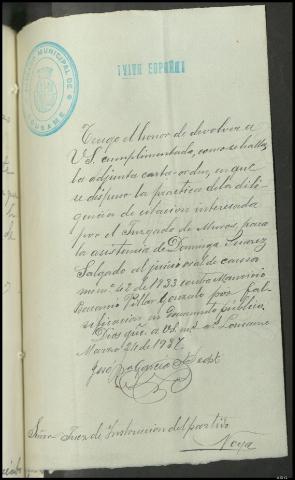 JUZGADO MUNICIPAL DE
LOUSAME
¡VIVA ESPAÑA!
Tengo el honor de devolver a
V.S. cumplimentada, como se halla,
la adjunta carta-orden, en que
se dispuso la práctica de la dili-
gencia de citación interesada
por el Juzgado de Muros, para
la asistencia de Dominga Suarez
Salgado al juicio oral de causa
núm. 42 de 1933 contra
por fal-
sificacion en documento público.
Dios gue. a V.S. m. a. Lousame
Marzo 24 de 1937.
José García
Señor Juez de Instruccion del partido
Noya